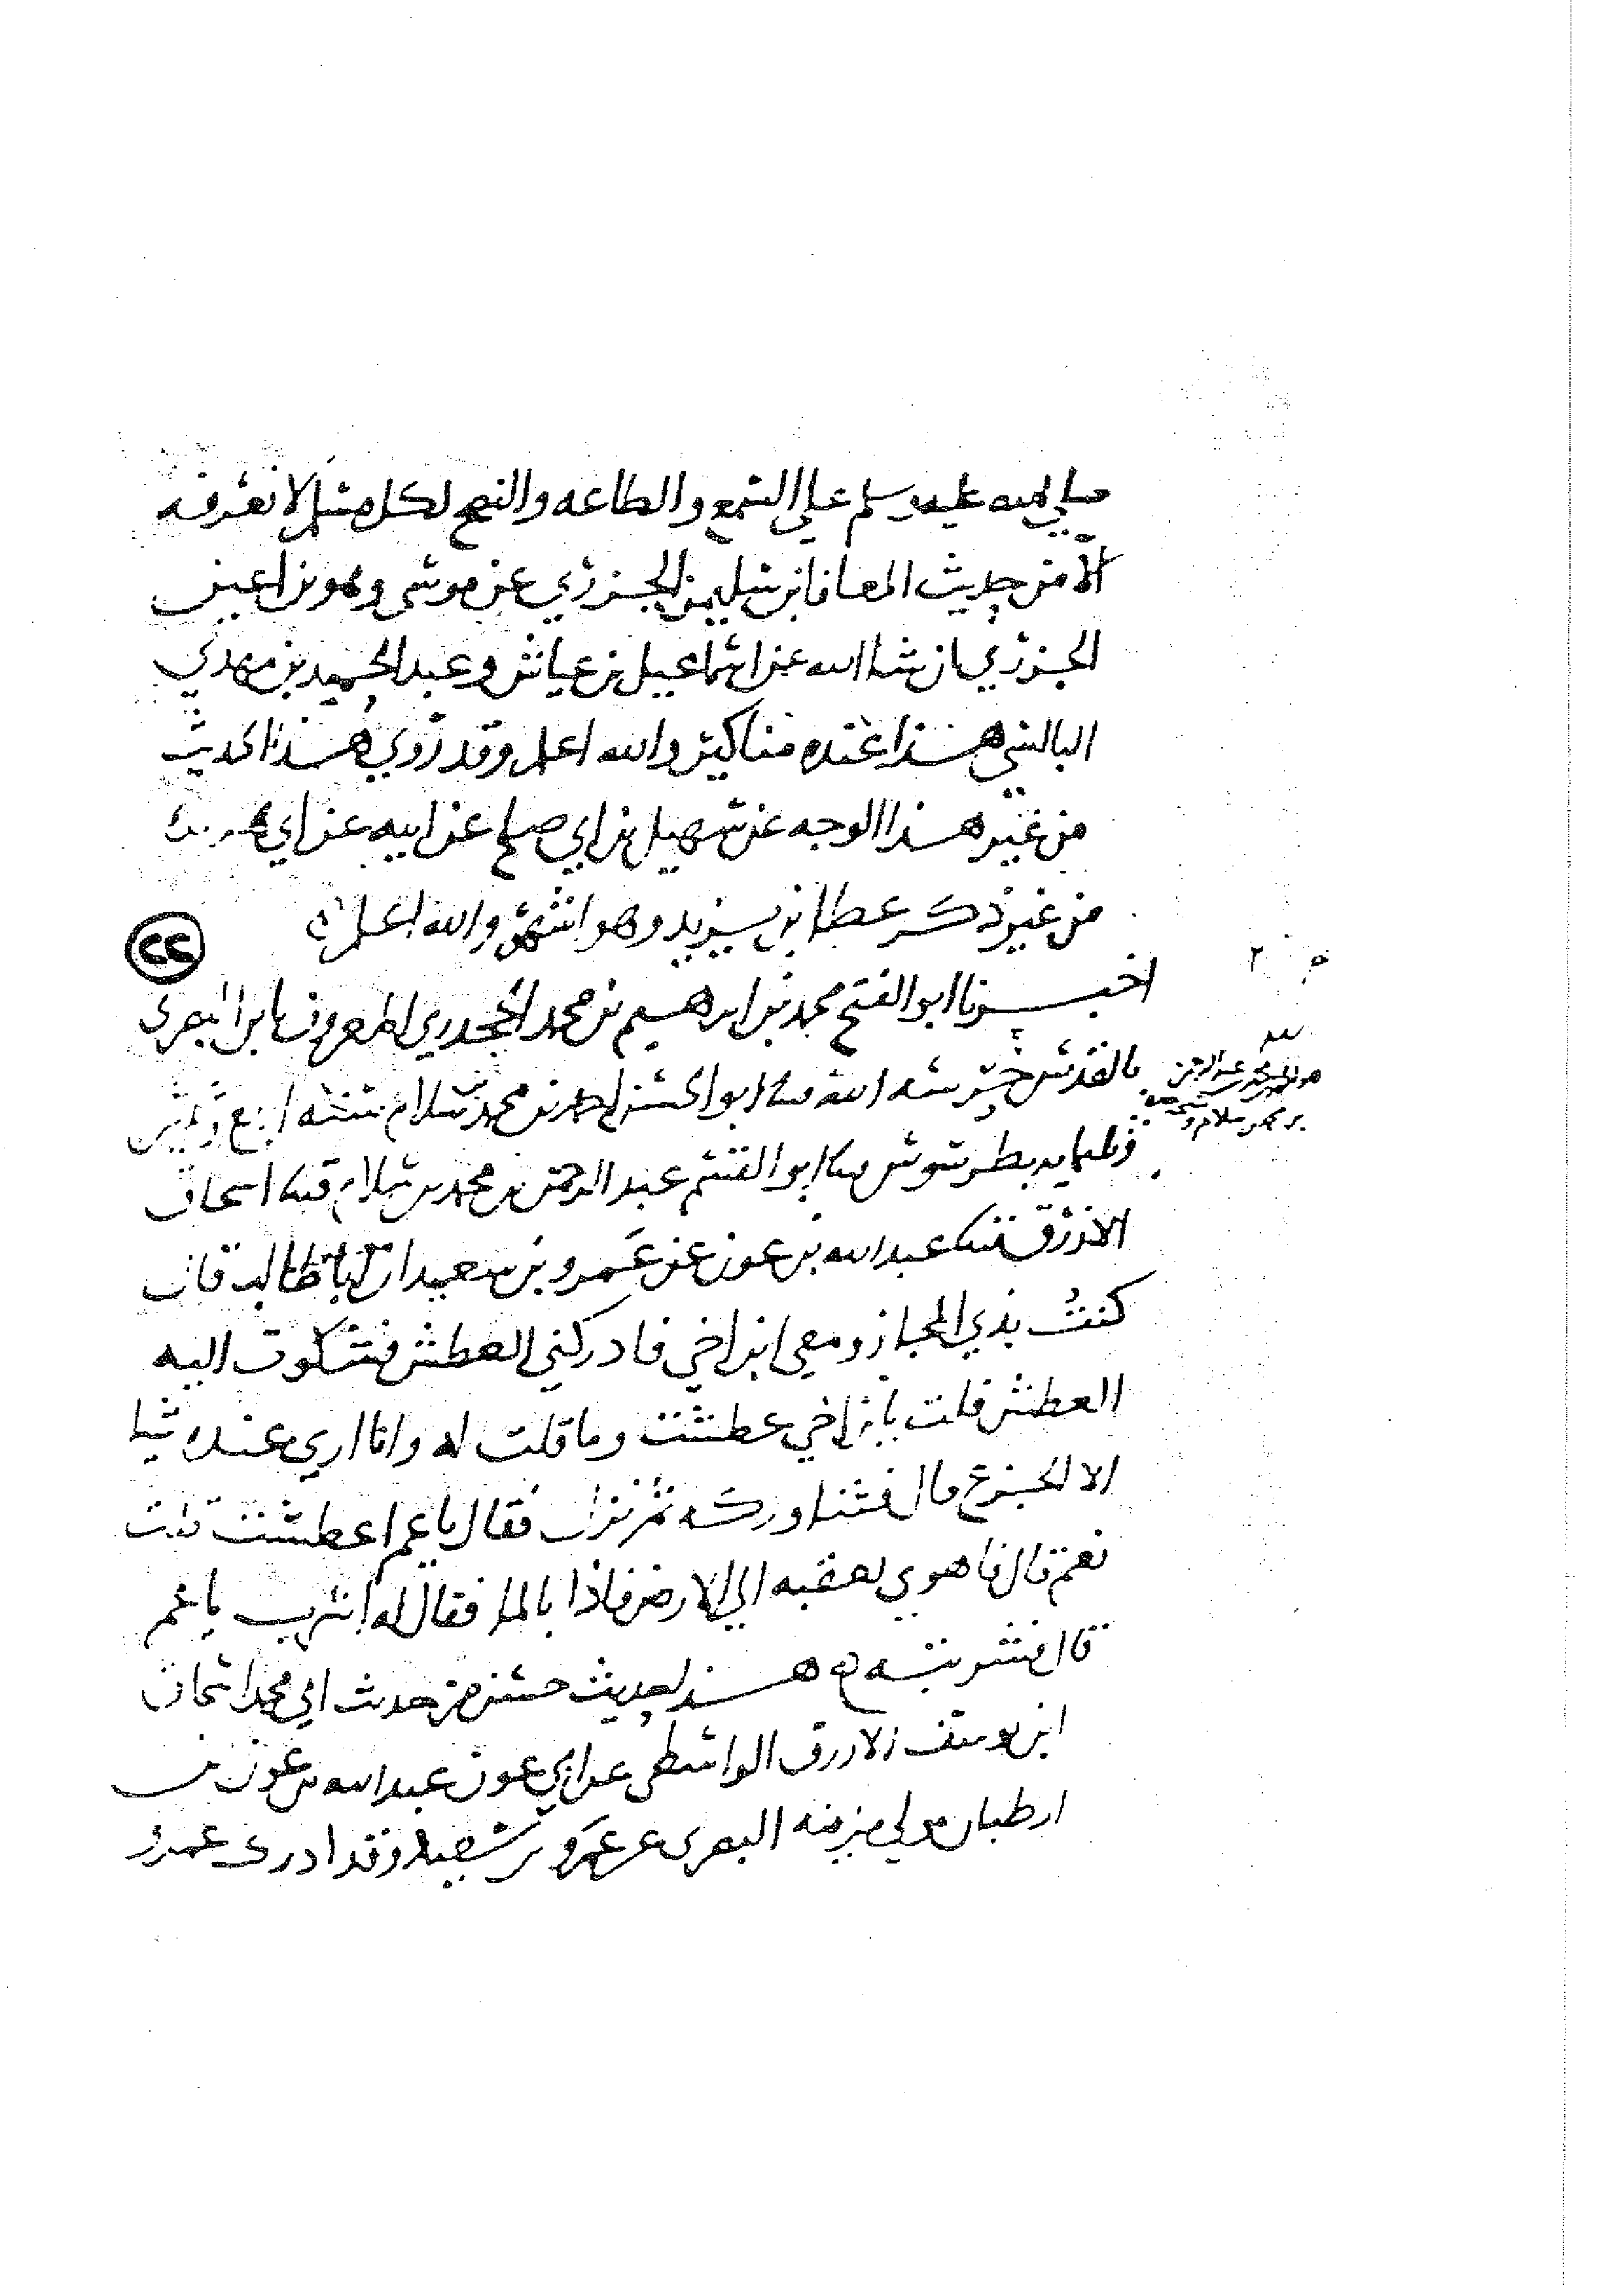 صلى الله عليه وسلم على السمع والطاعه والنصح لكل مسلم لا نعرفه
الا من حديث المعافا بن سليمن الجزري عن موسى وهو بن اعين
الجزري ان شا الله عن اسماعيل بن عياش وعبد الحميد بن مهدي
البالسي هذا عنده مناكير والله اعلم وقد روي هذا الحديث
من غير هذا الوجه عن سهيل بن ابي صالح عن ابيه عن ابي هريرة
من غير ذكر عطا بن يزيد وهو اشهر والله اعلم
٢٢
اخبرنا ابو الفتح محمد بن ابرهيم بن محمد الجحدري المعروف بابن البصري
بالقدس حرسه الله ثنا ابو الحسن احمد بن محمد بن سلام سنه اربع وثلثين
وثلثمايه بطرسوس ثنا ابو القسم عبد الرحمن بن محمد بن سلام قثنا اسحاق
الازرق قثنا عبد الله بن عون عن عمرو بن سعيد ان ابا طالب قال
كنت بذي المجاز ومعي ابن اخي فادركني العطش فشكوت اليه
العطش قلت يا بن اخي عطشت وما قلت له وانا اري عنده شيا
الا الجزع قال فثنا وركه ثم نزل فقال يا عم اعطشت قلت
نعم قال فاهوي بعقبه الي الارض فاذا بالما فقال له اشرب يا عم
قال فشربته هذا حديث حسن من حديث ابي محمد اسحاق
ابن يوسف الازرق الواسطي عن ابي عون عبد الله بن عون بن
ارطبان مولي مزينه البصري عن عمرو بن سعيد وقد ادرك عمرو